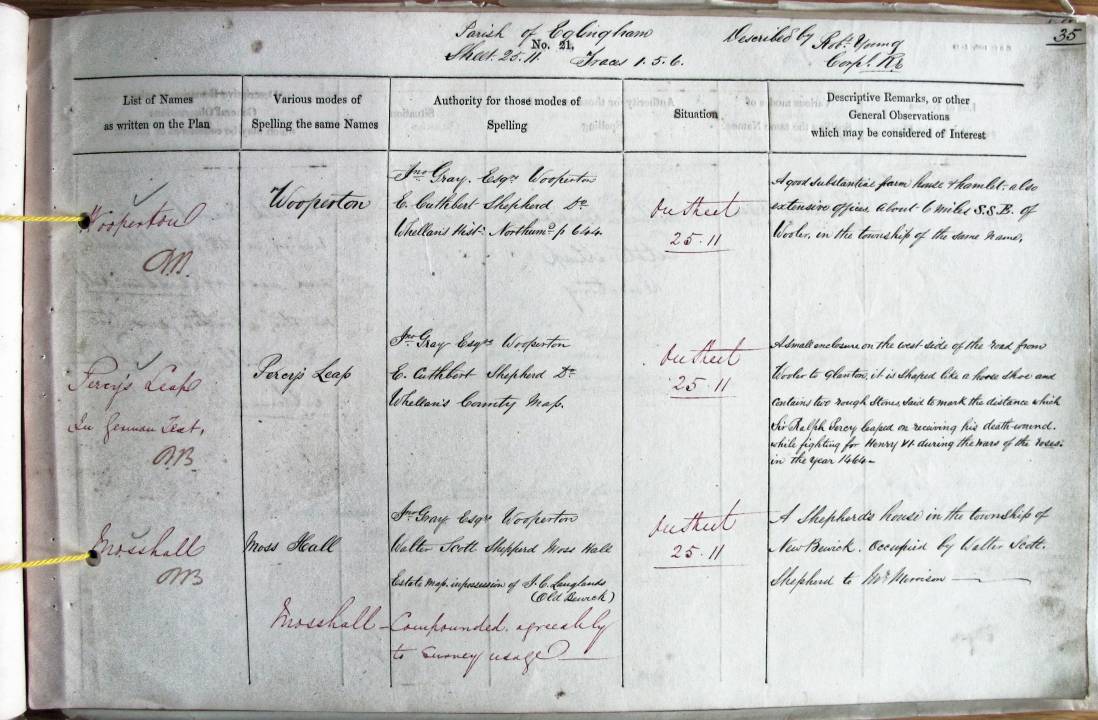 35
Parish of Eglingham
No. 21.
Sheet. 25.11 Traces 1.5.6.
Described by Robt. Young
Corpl. R.E
List of Names
as written on the Plan
Various modes of
Spelling the same Names
Authority for those modes of
Spelling
Situation
Descriptive Remarks, or other
General Observations
which may be considered of Interest
Wooperton
Wooperton
Jno Gray. Esqre Wooperton
C. Cuthbert Shepherd Do
Whellan's Hist. Northumd p 644.
On Sheet
25.11
A good substantial farm house & hamlet also
extensive offices. About 6 miles S.S.E. of
Wooler, in the township of the same name.
Percy's Leap
In German Text,
Percy's Leap
Jno Gray Esqre Wooperton
C. Cuthbert Shepherd Do
Whellan's County Map.
On Sheet
25.11
A small enclosure on the west side of the road from
Wooler to Glanton, it is shaped like a horse shoe and
contains two rough stones, said to mark the distance which
Sir Ralph Percy leaped on receiving his death-wound.
while fighting for Henry VI. during the wars of the roses.
in the year 1464-
Mosshall
Moss Hall
Jno Gray Esqre Wooperton
Walter Scott Shepherd Moss Hall
Estate Map in possession of J.C. Langlands
(Old Bewick)
On Sheet
25.11
A Shepherd's house in the township of
New Bewick. Occupied by Walter Scott.
Shepherd to Mr Morrison
Mosshall - Compounded. agreeably
to Survey usage